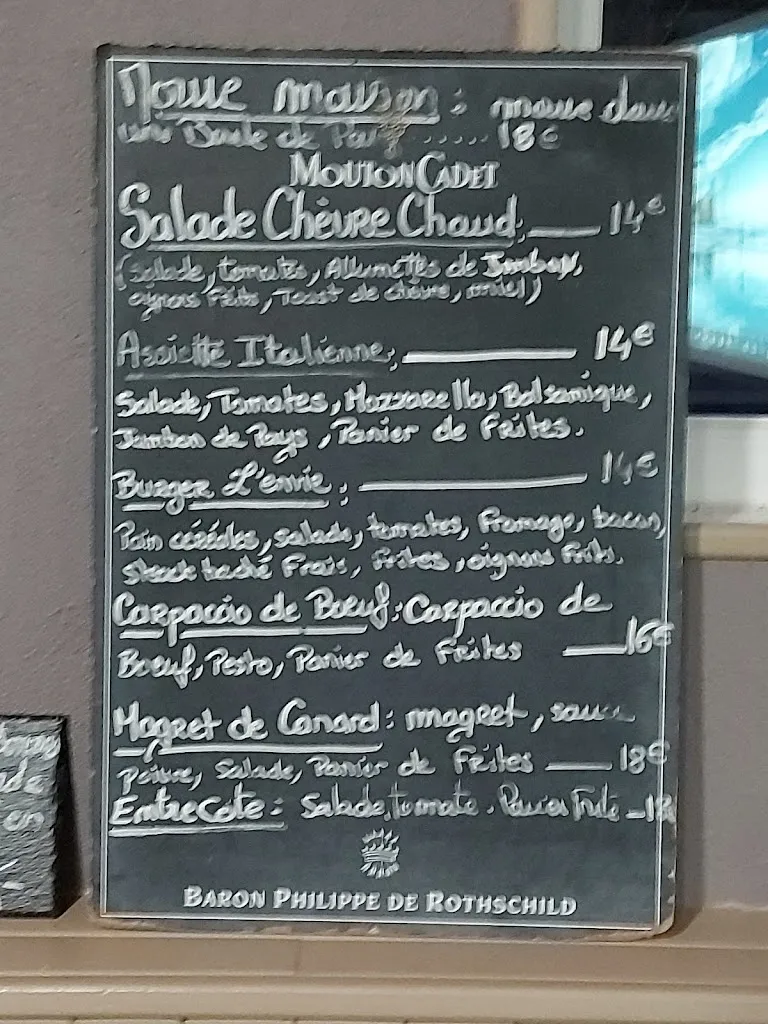 maison :
une Boule de Pain ..... 18€
MOUTON CADET
Salade Chèvre Chaud : 14€
(Salade, tomates, Allumettes de Jambon,
oignons Frits, Toast de chèvre, miel)
Assiette Italienne : 14€
Salade, Tomates, Mozzarella, Balsamique,
Jambon de Pays, Panier de Frites.
Burger L'envie : 14€
Pain céréales, salade, tomates, Fromage, bacon,
Steack haché Frais, Frites, oignons Frits.
Carpaccio de Boeuf : Carpaccio de
Boeuf, Pesto, Panier de Frites 16€
Magret de Canard : magret, sauce
Poivre, Salade, Panier de Frites 18€
Entrecote : Salade, tomate, Panier
BARON PHILIPPE DE ROTHSCHILD